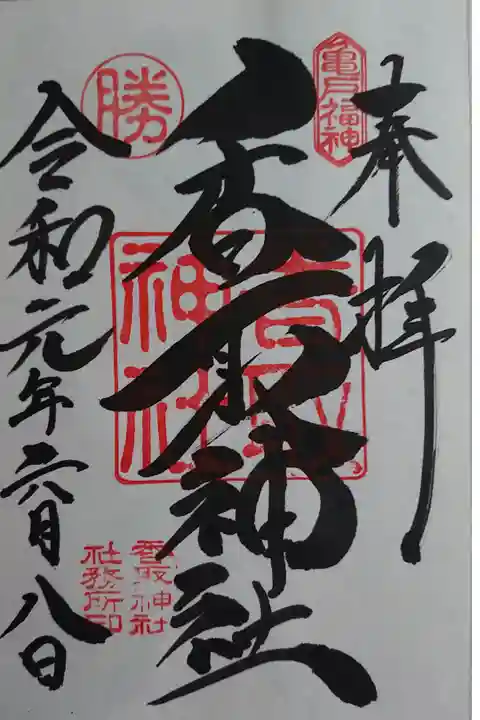 奉拝
亀戸福神
香取神社
香取神社
香取神社
社務所印
勝
令和元年六月八日